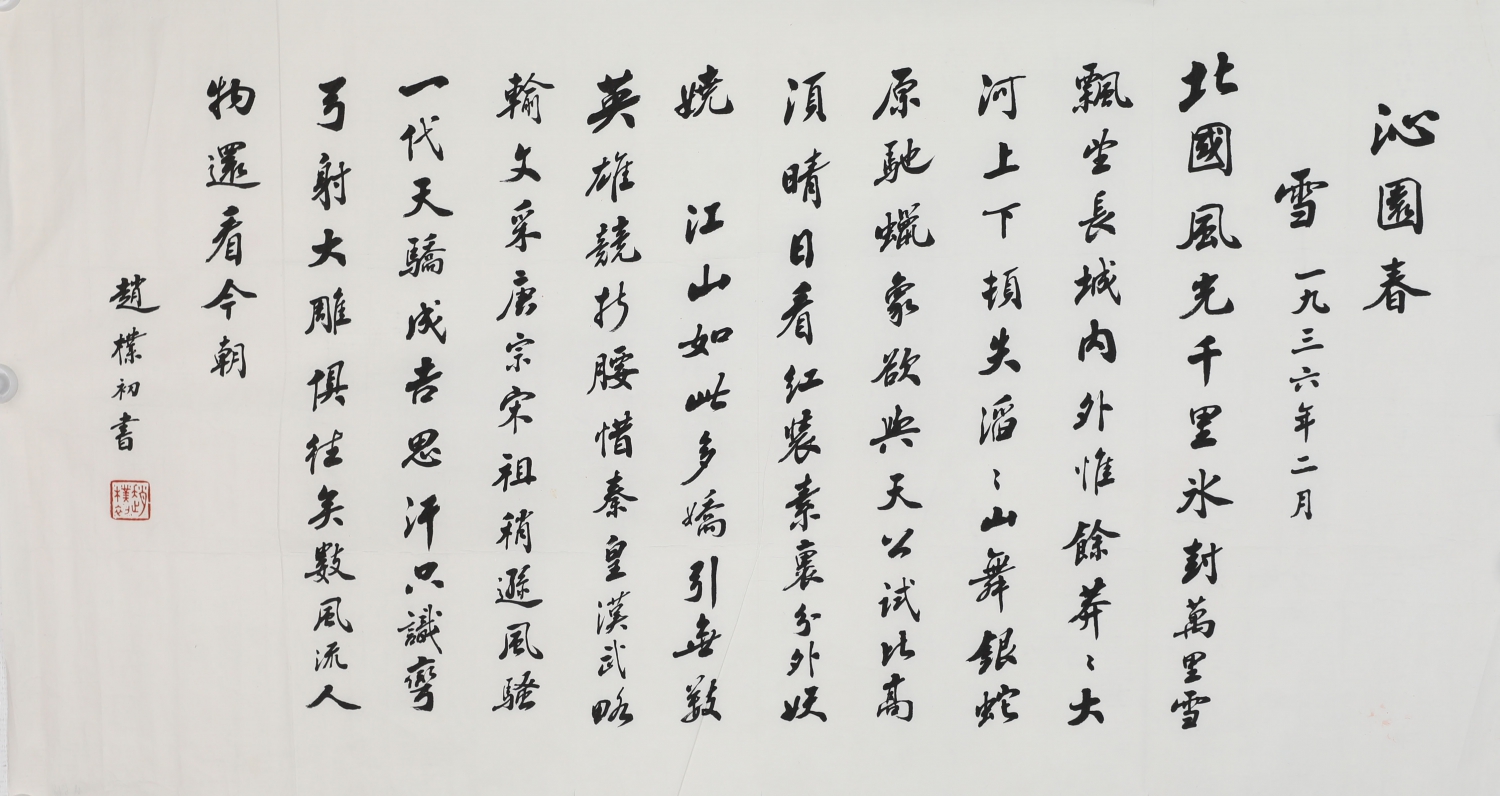 沁園春
雪 一九三六年二月
北國風光千里冰封萬里雪
飄望長城內外惟餘莽〻大
河上下頓失滔〻山舞銀蛇
原馳蠟象欲與天公試比高
須晴日看紅裝素裹分外妖
嬈 江山如此多嬌引無數
英雄競折腰惜秦皇漢武略
輸文采唐宗宋祖稍遜風騷
一代天驕成吉思汗只識彎
弓射大雕俱往矣數風流人
物還看今朝
趙樸初書
趙樸初